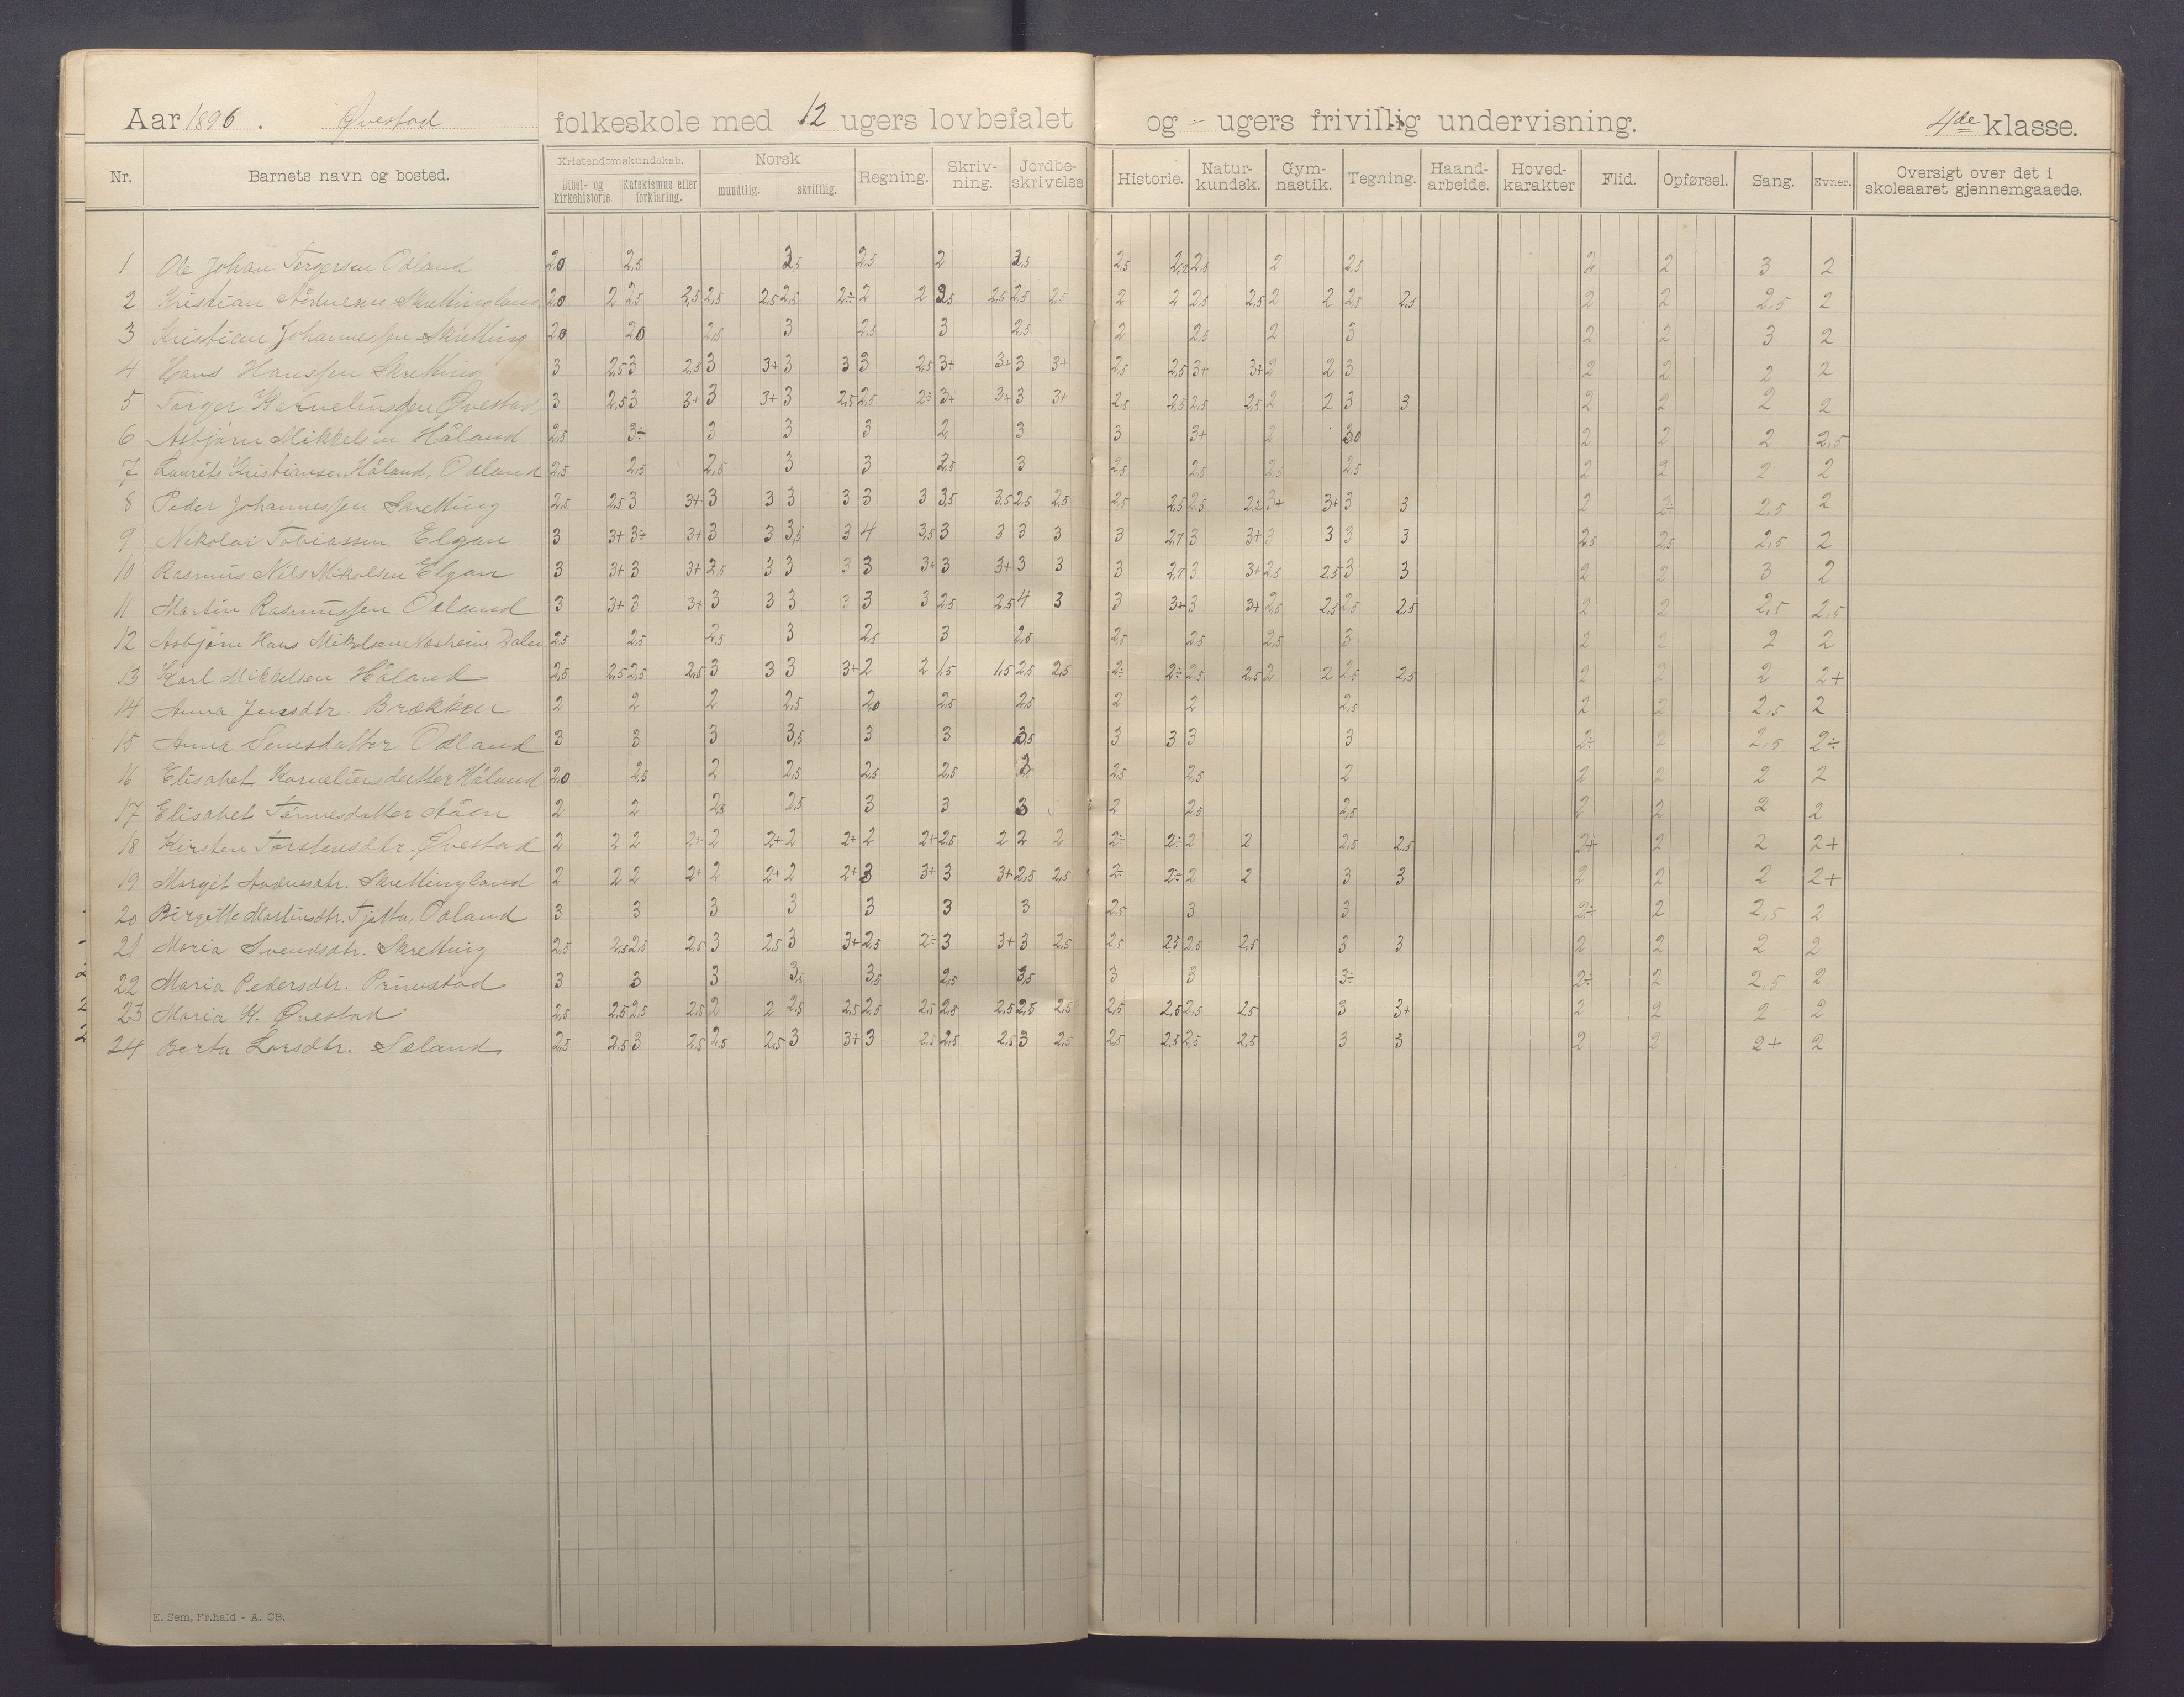 Aar 1896. Øvestad folkeskole med 12 ugers lovbefalet og - ugers frivillig undervisning. 4de klasse.
Nr. Barnets navn og bosted. Kristendomskundskab. Bibel- og kirkehistorie. Katekismus eller forklaring. Norsk mundtlig. skriftlig. Regning. Skriv-ning. Jordbe-skrivelse Historie. Natur-kundsk. Gym-nastik. Tegning. Haand-arbeide. Hoved-karakter Flid. Opførsel. Sang. Evner. Oversigt over det i skoleaaret gjennemgaaede.
1 Ole Johan Torgersen Odland 2,0 2,5 2,5 2 2,5 2,5 2 2,5 2 2 3 2
2 Kristian Skrettingland 2,0 2 2,5 2,5 2,5 2,5 2,5 2÷ 2 2 2,5 2,5 2,5 2 2 2,5 2,5 2 2 2,5 2,5 2 2 2,5 2
3 Kristian Johannessen Skretting 2,0 2,0 2,5 3 2,5 3 2,5 2 2,5 2 3 2 2 3 2
4 Hans Hanssen Skretting 3 2,5 3 2,5 3 3+ 3 3 3 2,5 3+ 3+ 3 3+ 2,5 2,5 3+ 3+ 2 2 3 2 2 2 2
5 Torger Kornelinssen Øvestad 3 2,5 3 3+ 3 3+ 3 2,5 2,5 2÷ 3+ 3+ 3 3+ 2,5 2,5 2,5 2,5 2 2 3 3 2 2 2 2
6 Asbjørn Mikkelsen Håland 2,5 3÷ 3 3 3 2 3 3 3+ 2 3,0 2 2 2 2,5
7 Laurits Kristiansen Håland, Odland 2,5 2,5 2,5 3 3 2,5 3 2,5 2,5 2,5 2,5 2 2 2 2
8 Peder Johannessen Skretting 2,5 2,5 3 3+ 3 3 3 3 3 3 3,5 3,5 2,5 2,5 2,5 2,5 2,5 2,2 3+ 3+ 3 3 2 2÷ 2,5 2
9 Nikolai Tobiassen Elgan 3 3+ 3÷ 3+ 3 3 3,5 3 4 3,5 3 3 3 3 3 2,7 3 3+ 3 3 3 3 2,5 2,5 2,5 2
10 Rasmus Nils Nikolsen Elgan 3 3+ 3 3+ 2,5 3 3 3 3 3+ 3 3+ 3 3 3 2,7 3 3+ 2,5 2,5 3 3 2 2 3 2
11 Martin Rasmussen Odland 3 3+ 3 3+ 3 3 3 3 3 3 2,5 2,5 4 3 3 3+ 3 3+ 2,5 2,5 2,5 2,5 2 2 2,5 2,5
12 Asbjørn Hans Mikalsen Nesheim Dalen 2,5 2,5 2,5 3 2,5 3 2,5 2,5 2,5 2,5 3 2 2 2 2
13 Karl Mikkelsen Håland 2,5 2,5 2,5 2,5 3 3 3 3+ 2 2 1,5 1,5 2,5 2,5 2÷ 2÷ 2,5 2,5 2 2 2,5 2,5 2 2 2 2+
14 Anna Jensdtr. Brækken 2 2 2 2,5 2,0 2,5 2,5 2 2 2,5 2 2 2,5 2
15 Anna Odland 3 3 3 3,5 3 3 3,5 3 3 3 3 2÷ 2 2,5 2÷
16 Elisabet Korneliusdatter Håland 2,0 2,5 2 2,5 2,5 2,5 2,5 2,5 2 2 2 2 2
17 Elisabet Tønnesdatter Åen 2 2 2,5 2,5 3 3 3 2 2,5 2,5 2 2 2 2
18 Kirsten Torstensdtr. Øvestad 2 2 2 2÷ 2 2+ 2 2+ 2 2+ 2,5 2 2 2 2÷ 2÷ 2 2 2,5 2,5 2+ 2 2 2+
19 Margit Skrettingland 2 2 2 2+ 2 2+ 2 2+ 3 3+ 3 3+ 2,5 2,5 2÷ 2÷ 2 2 3 3 2 2 2 2+
20 Birgitte Martinsdtr. Tjøtta, Odland 3 3 3 3 3 3 3 2,5 3 3 2÷ 2 2,5 2
21 Maria Svendsdtr. Skretting 2,5 2,5 2,5 2,5 3 2,5 3 3+ 2,5 2÷ 3 3+ 3 2,5 2,5 2,5 2,5 2,5 3 3 2 2 2 2
22 Maria Pedersdtr. Prinustad 3 3 3 3,5 3,5 2,5 3,5 3 3 3÷ 2÷ 2 2,5 2
23 Maria K. Øvestad 2,5 2,5 2,5 2,5 2 2 2,5 2,5 2,5 2,5 2,5 2,5 2,5 2,5 2,5 2,5 2,5 2,5 3 3+ 2 2 2 2
24 Berta Larsdtr. Sæland 2,5 2,5 3 2,5 2,5 2,5 3 3+ 3 2,5 2,5 2,5 3 2,5 2,5 2,5 2,5 2,5 3 3 2 2 2+ 2
E. Sem, Fr.hald - A. CB.